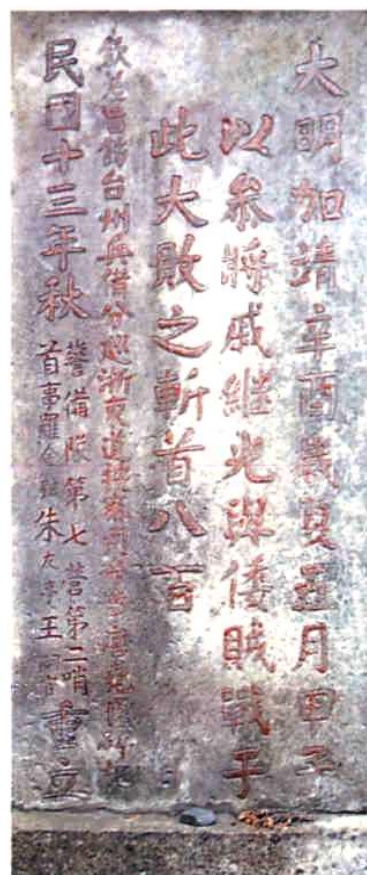 大明加靖辛酉歲夏五月甲子
以叅將戚繼光與倭賊戰于
此大敗之斬首八百
欽差整飭台州兵備分巡浙東道按察司
民國十三年秋
警備隊第七營第二哨
首事羅 朱友亭王 重立